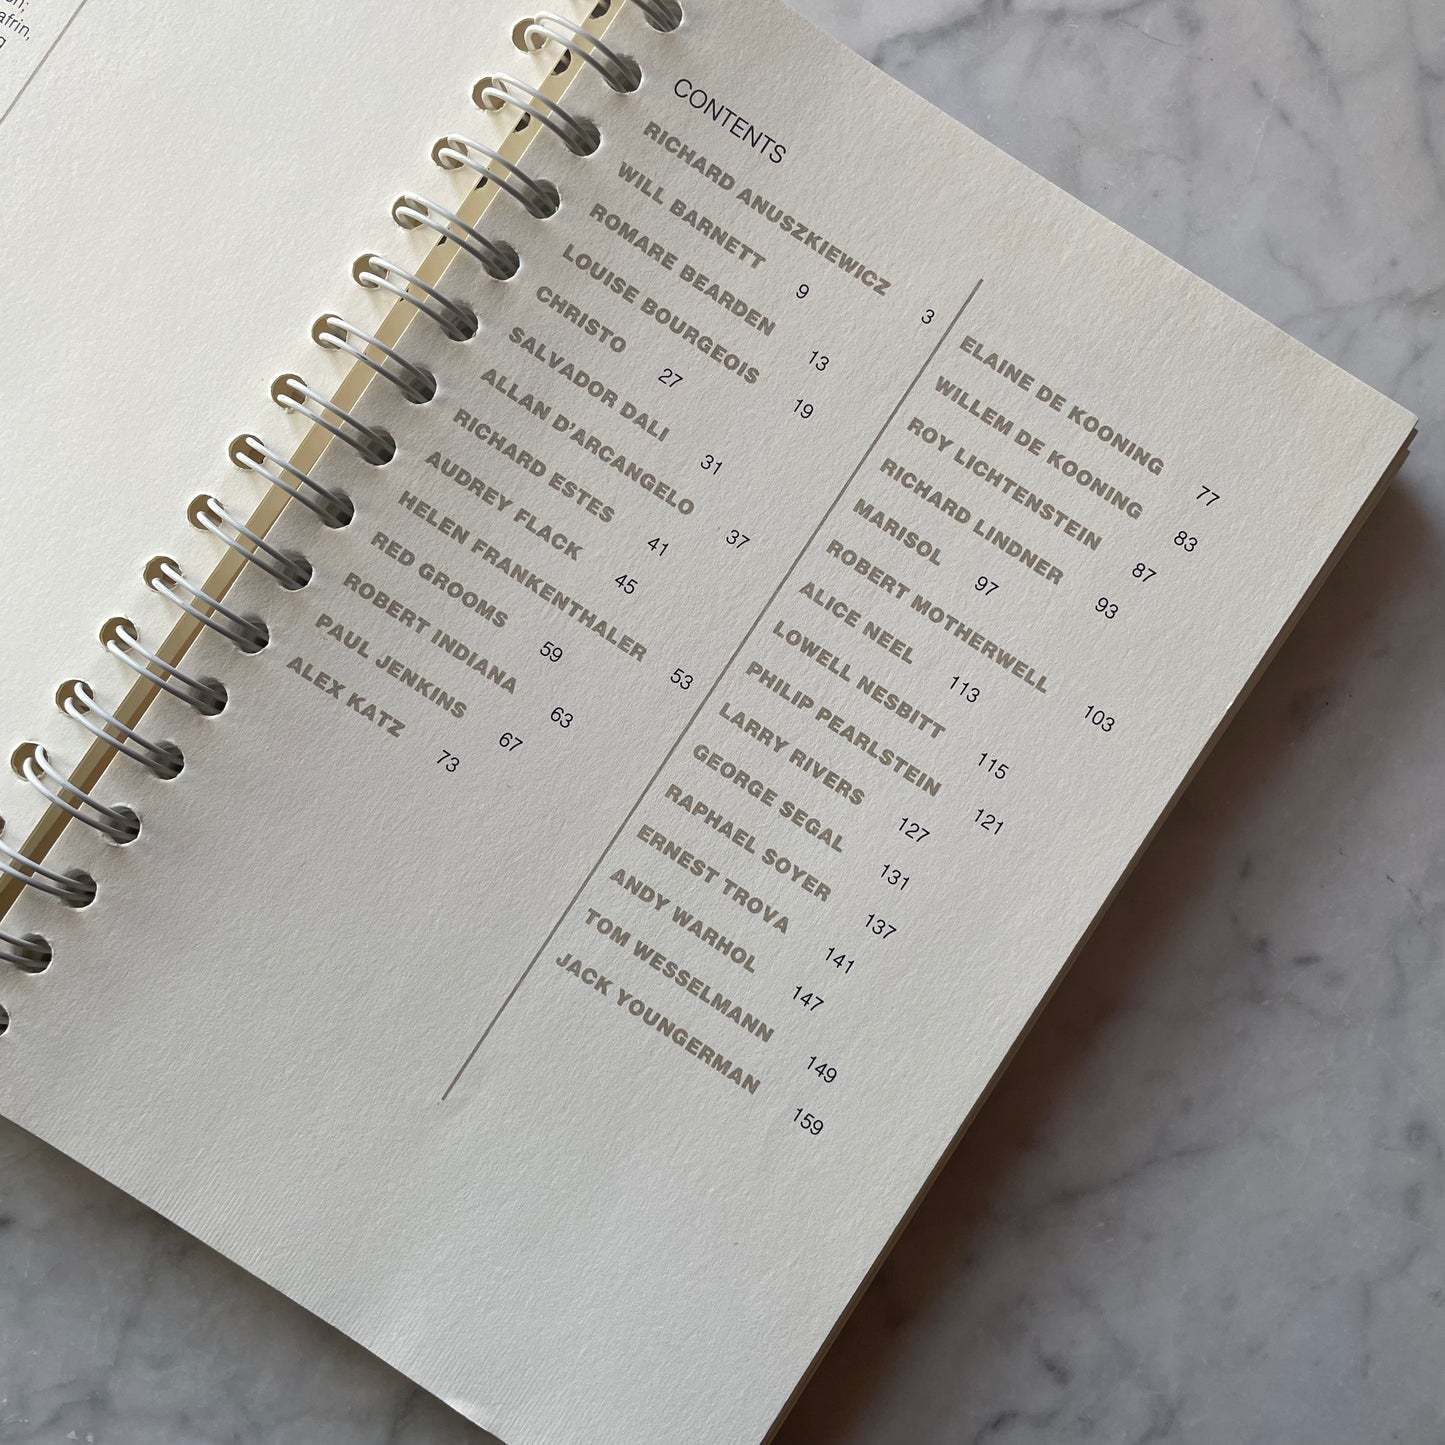 afrin,
g
CONTENTS
RICHARD ANUSZKIEWICZ 3
WILL BARNETT 9
ROMARE BEARDEN 13
LOUISE BOURGEOIS 19
CHRISTO 27
SALVADOR DALI 31
ALLAN D'ARCANGELO 37
RICHARD ESTES 41
AUDREY FLACK 45
HELEN FRANKENTHALER 53
RED GROOMS 59
ROBERT INDIANA 63
PAUL JENKINS 67
ALEX KATZ 73
ELAINE DE KOONING 77
WILLEM DE KOONING 83
ROY LICHTENSTEIN 87
RICHARD LINDNER 93
MARISOL 97
ROBERT MOTHERWELL 103
ALICE NEEL 113
LOWELL NESBITT 115
PHILIP PEARLSTEIN 121
LARRY RIVERS 127
GEORGE SEGAL 131
RAPHAEL SOYER 137
ERNEST TROVA 141
ANDY WARHOL 147
TOM WESSELMANN 149
JACK YOUNGERMAN 159